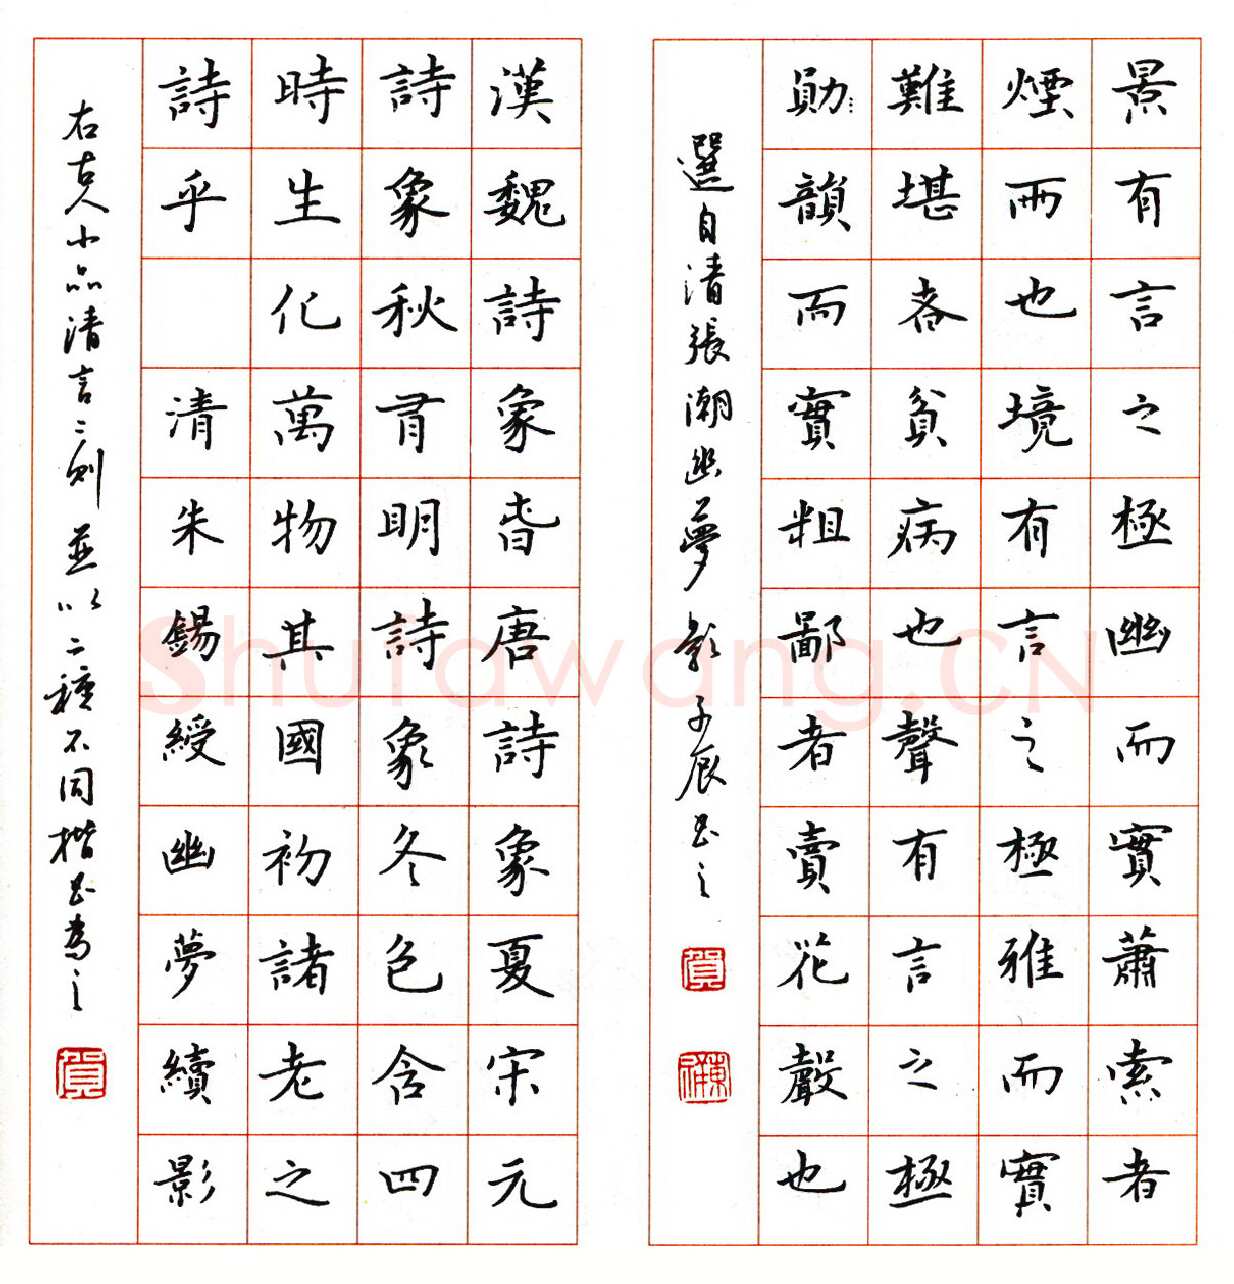 景有言之極幽而實蕭索者
煙雨也境有言之極雅而實
難堪者貧病也聲有言之極
勛韻而實粗鄙者賣花聲也
選自清張潮幽夢影 辰書之
賀
漢魏詩象春唐詩象夏宋元
詩象秋有明詩象冬色含四
時生化萬物其國初諸老之
詩乎 清朱錫綬幽夢續影
右古人小品清言二則並以二種不同楷書為之
賀
Shufawang.CN